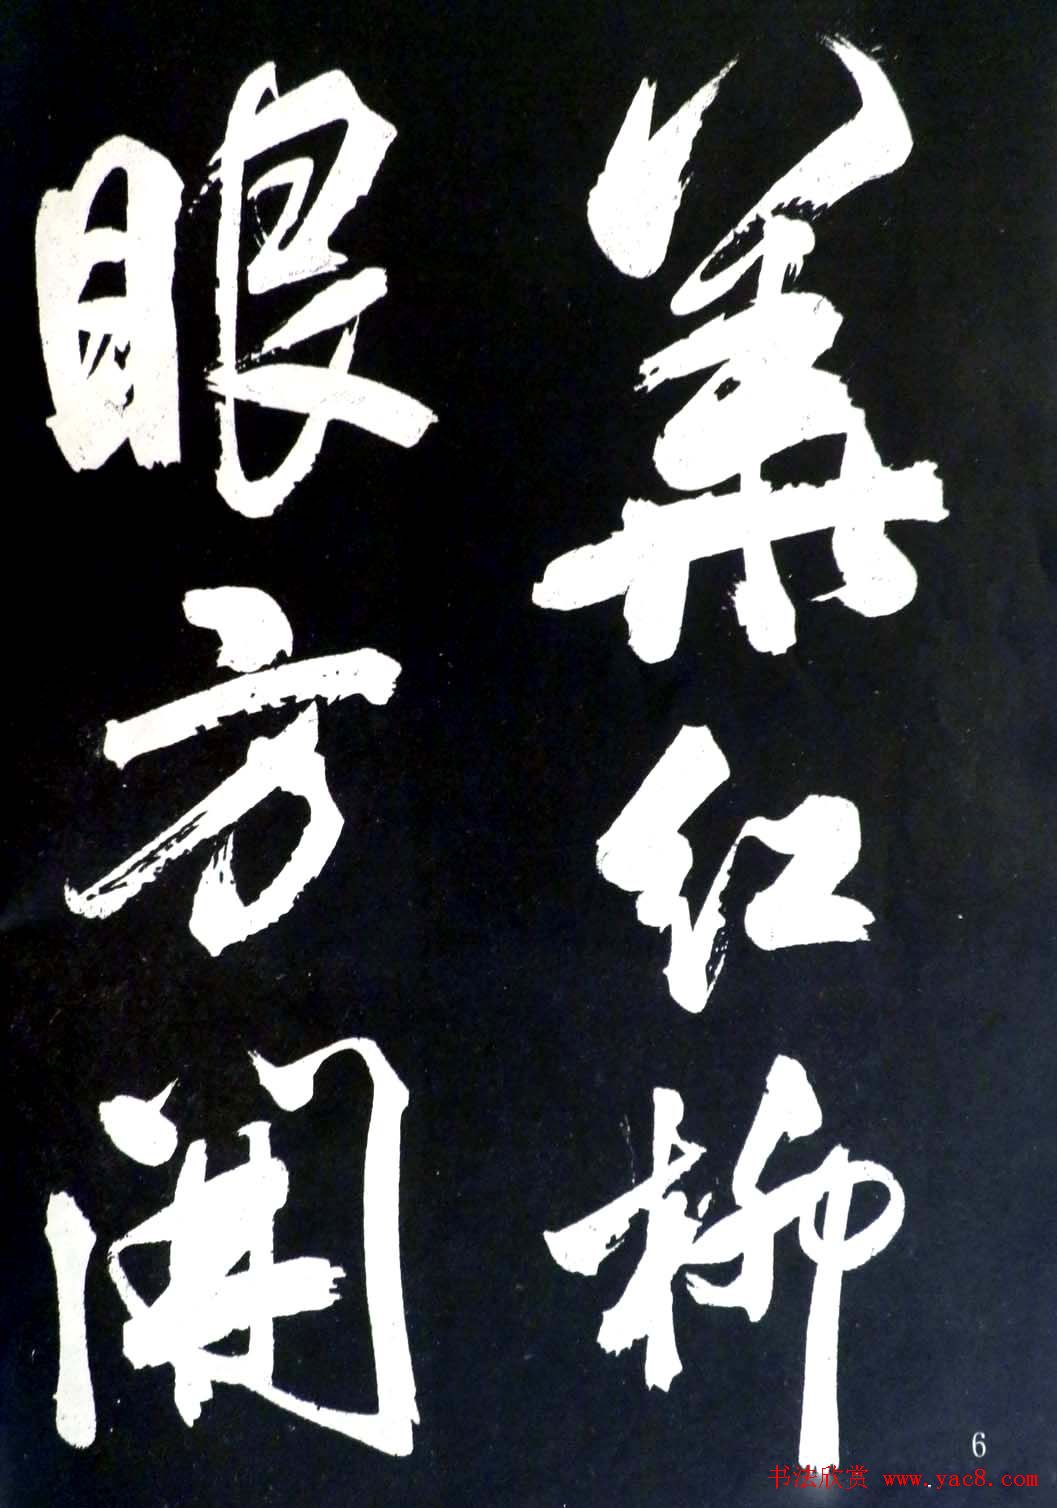 紅柳
眼方開
6
书法欣赏 www.yac8.com